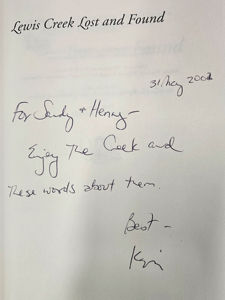 Lewis Creek Lost and Found
31. May 2002
For Sandy + Henry –
Enjoy The Creek and
These words about them.
Best –